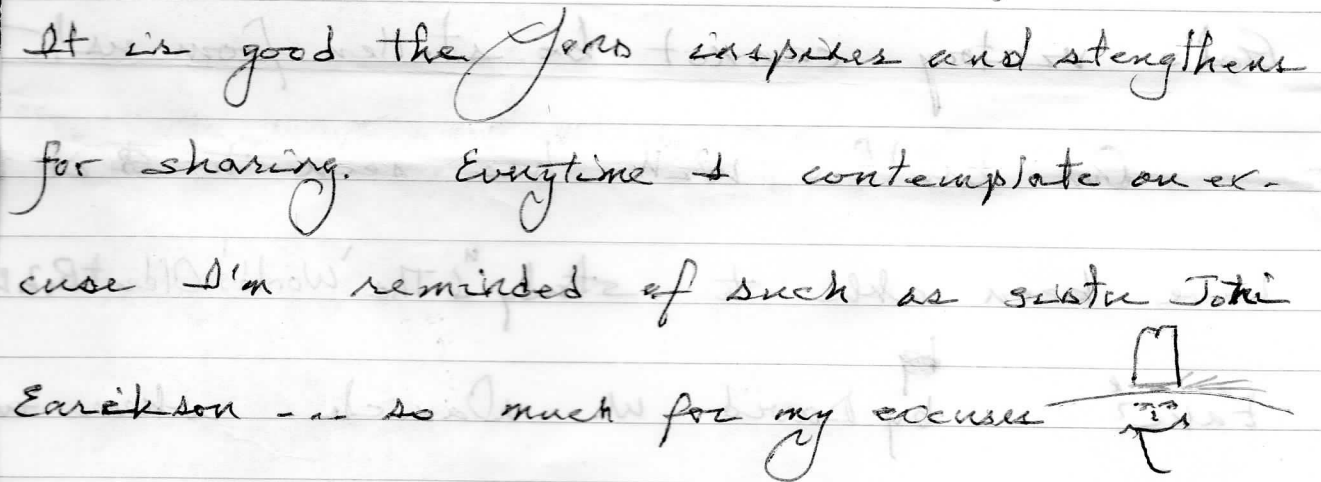 It is good the Lord inspires and stengthens
for sharing. Everytime I contemplate an ex-
cuse I'm reminded of such as sister Joni
Earekson --- so much for my excuses